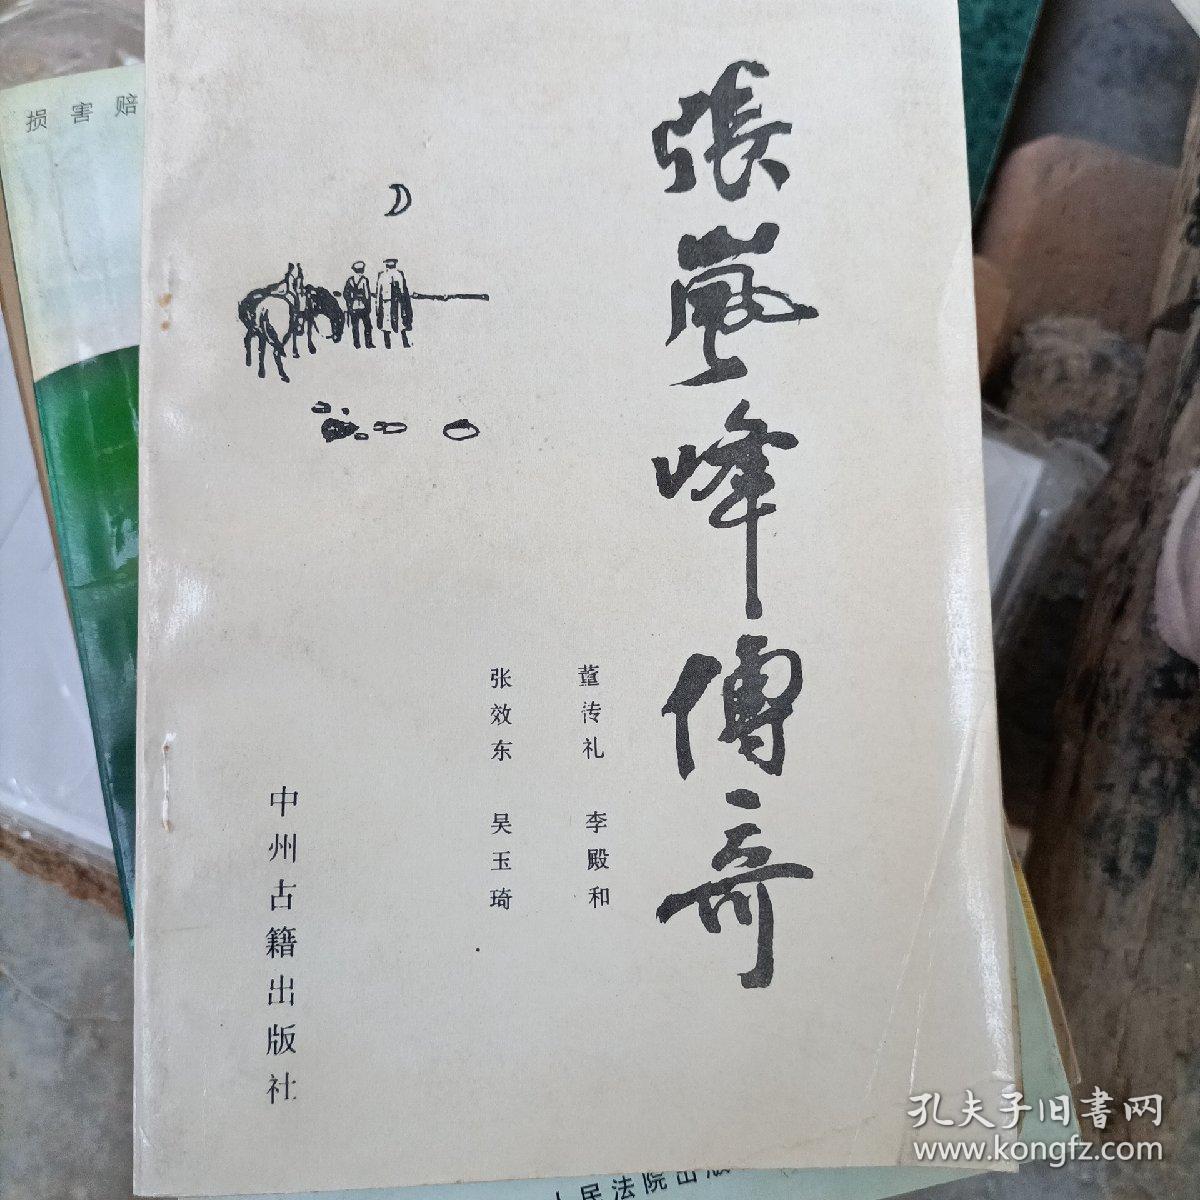 損害賠
張嵐峰傳奇
董传礼 李殿和
张效东 吴玉琦
中州古籍出版社
人民法院出版
孔夫子旧書网
www.kongfz.com